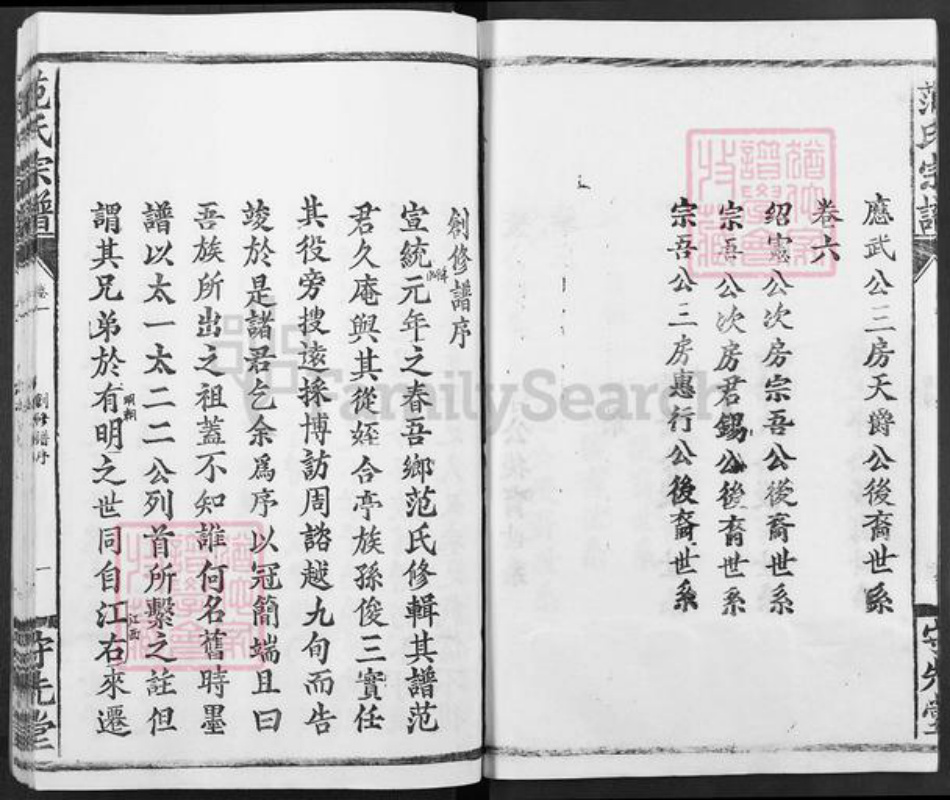 范氏宗譜
守先堂
應武公三房天爵公後裔世系
卷六
紹憲公次房宗吾公後裔世系
宗吾公次房君錫公後裔世系
宗吾公三房惠行公後裔世系
創修譜序
宣統元年之春吾鄉范氏修輯其譜范
君久庵與其從姪合亭族孫俊三實任
其役旁搜遠採博訪周諮越九旬而告
竣於是諸君乞余爲序以冠簡端且曰
吾族所出之祖蓋不知誰何名舊時墨
譜以太一太二二公列首所繫之註但
謂其兄弟於有明之世同自江右來遷
明朝
江西
范氏宗譜
卷一
創修譜序
一
守先堂
FamilySearch